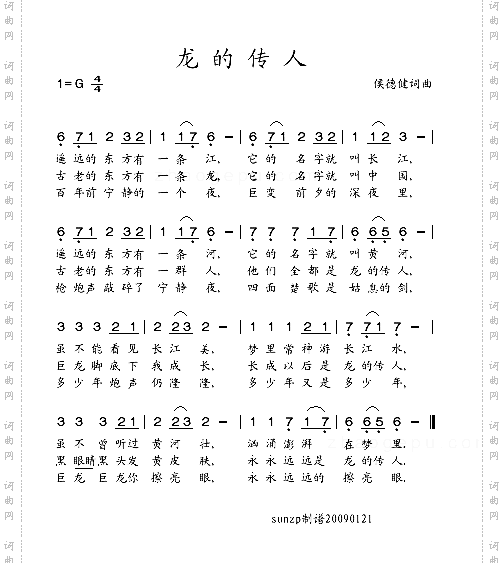 龙的传人
1=G 4/4
侯德健词曲
6 7 1 2 3 2 | 1 1 7 6 – | 6 7 1 2 3 2 | 1 1 2 3 – |
遥远的东方有 一条 江, 它的 名字就 叫长 江,
古老的东方有 一条 龙, 它的 名字就 叫中 国,
百年前宁静的 一个 夜, 巨变 前夕的 深夜 里,
6 7 1 2 3 2 | 1 1 7 6 – | 6 7 1 2 1 7 | 6 6 5 6 – |
遥远的东方有 一条 河, 它的 名字就 叫黄 河,
古老的东方有 一群 人, 他们 全都是 龙的传人,
枪炮声敲碎了 宁静 夜, 四面 楚歌是 姑息的剑,
3 3 3 2 1 | 2 2 3 2 – | 1 1 1 2 1 | 7 7 1 7 – |
虽不能看见 长江 美, 梦里常神游 长江 水,
巨龙脚底下 我成 长, 长成以后是 龙的传人,
多少年炮声 仍隆 隆, 多少年又是 多少 年,
3 3 3 2 1 | 2 2 3 2 – | 1 1 7 1 7 | 6 6 5 6 –
虽不曾听过 黄河 壮, 汹涌澎湃 在梦 里,
黑眼睛黑头发 黄皮 肤, 永永远远是 龙的传人,
巨龙巨龙你 擦亮 眼, 永永远远的 擦亮 眼,
sunzp制谱20090121
词曲网
词曲网
词曲网
词曲网
词曲网
词曲网
词曲网
词曲网